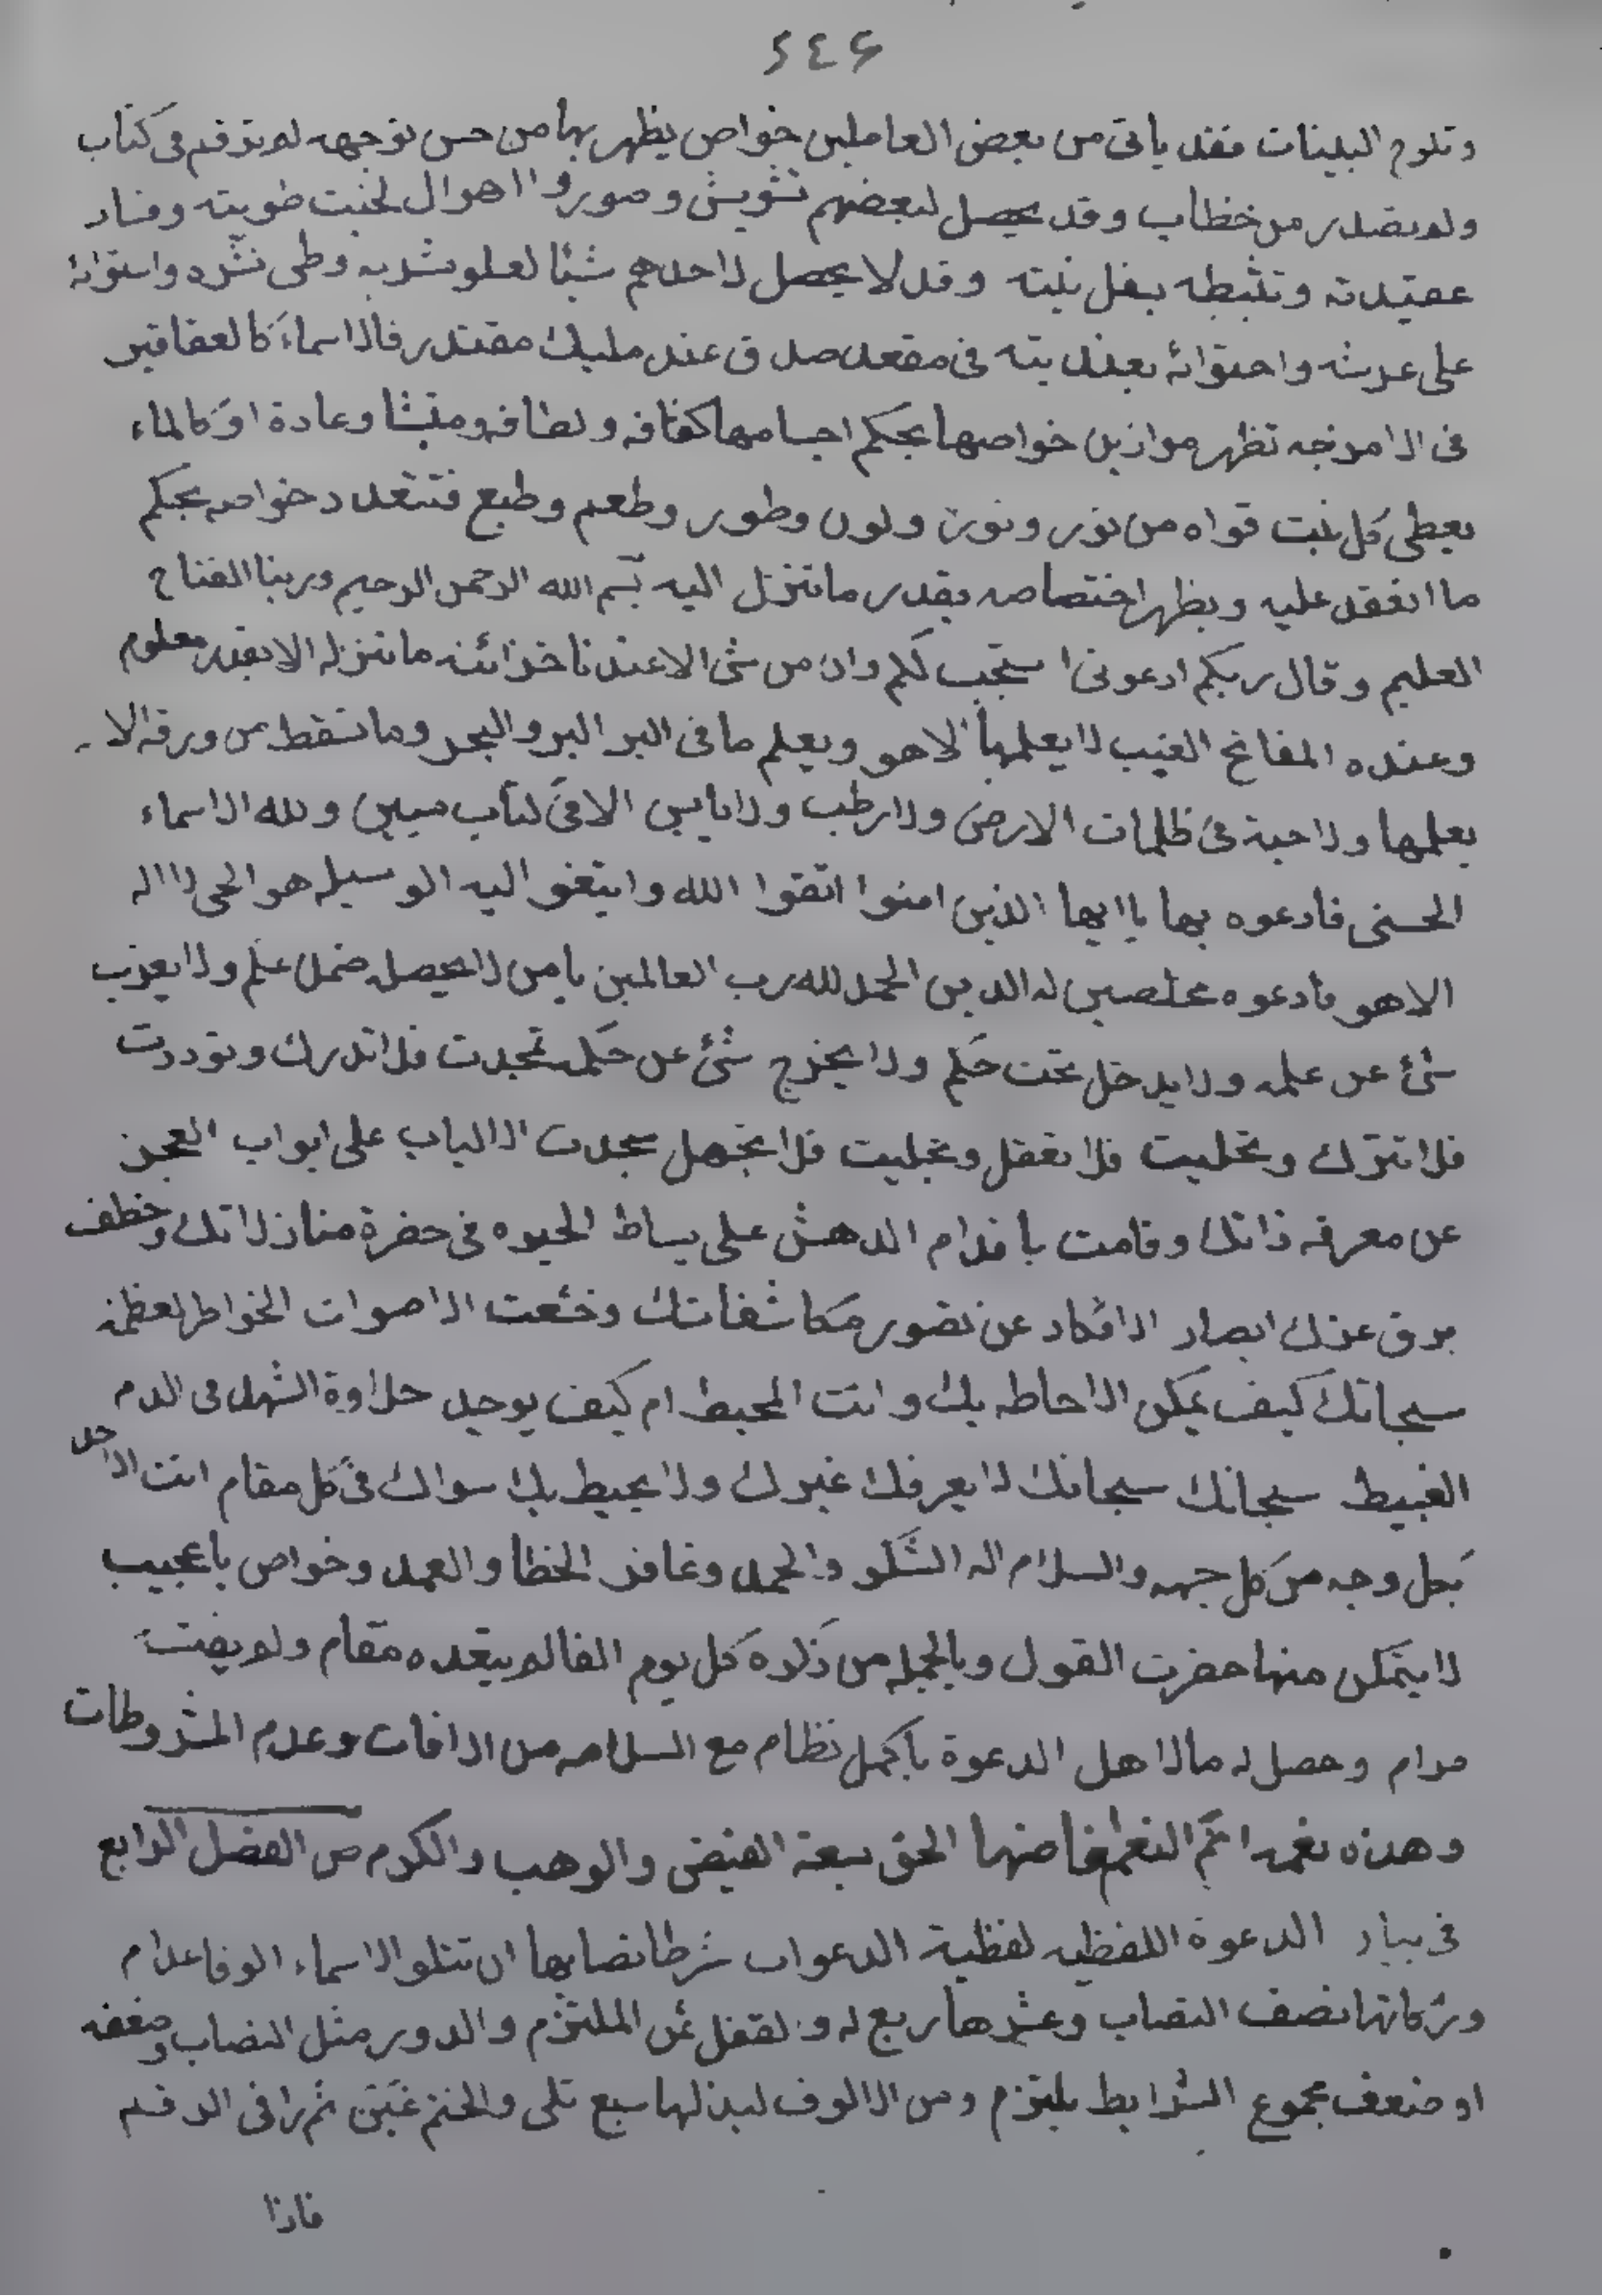 ٢٤٦
وتلوم البينات فقد ياتى من بعض العاملين خواص يظهر بها من حسن توجهه لم ترقم فى كتاب
ولم يصدر من خطاب وقد يحصل لبعضهم تشويش وصور والاهوال لخبث طويته وفساد
عقيدته وتثبطه بفل نيته وقد لا يحصل لاحدهم شيئا لعلو شربه وطى نشره واستوائه
على عرشه واحتوائه بعنديته فى مقعد صدق عند مليك مقتدر فالاسماء كالعقاقير
فى الامزجه تظهر موازين خواصها بحكم اجسامها كثافه ولطافه ومنشا وعادة او كالماء
يعطى كل نبت قواه من نور ونورة ولون وطور وطعم وطبع فتتعدد خواصه بحكم
ما انعقد عليه ويظهر اختصاصه بقدر ما تنزل اليه بسم الله الرحمن الرحيم وربنا الفتاح
العليم وقال ربكم ادعونى استجب لكم وان من شى الا عندنا خزائنه ما ننزله الا بقدر معلوم
وعنده المفاتح الغيب لا يعلمها الا هو ويعلم ما فى البر البر والبحر وما تسقط من ورقه الا
يعلمها ولا حبة فى ظلمات الارض ولا رطب ولا يابس الا فى كتاب مبين ولله الاسماء
الحسنى فادعوه بها يا ايها الذين امنوا اتقوا الله وابتغوا اليه الوسيله هو الحى لا اله
الا هو فادعوه مخلصين له الدين الحمد لله رب العالمين يا من لا يحصله ضمل علم ولا يعزب
شئ عن علمه ولا يدخل تحت حكم ولا يخرج شئ عن حكمه تمجدت فلا تدرك وتوددت
فلا تترك وتخليت فلا تعقل وتجليت فلا تجهل سجدت الالباب على ابواب العجز
عن معرفه ذاتك وقامت باقدام الدهش على بساط الحيره فى حضرة منازلاتك وخطف
برق عزك ابصار الافكار عن تصور مكاشفاتك وخشعت الاصوات الخواطر لعظمة
سبحانك كيف يمكن الاحاطه بك وانت المحيط ام كيف يوجد حلاوة الشهد فى الدم
الغبيط سبحانك سبحانك لا يعرفك غيرك ولا يحيط بك سواك فى كل مقام انت الاحد
بكل وجه من كل جهه والسلام اله الشكر والحمد وغافر الخطا والعمد وخواص يا عجيب
لا يتمكن منها حضرت القول وبالجمله من ذكره كل يوم الفا لم يبعده مقام ولم يفته
مرام وحصل له ما لاهل الدعوة باكمل نظام مع السلامه من الافات وعدم المشروطات
وهذه نعمه اتم النعم افاضها الحق بسعة الفيض والوهب والكرم ص الفصل الرابع
فى بيان الدعوة اللفظيه لفظية الدعوات شرطا نصابها ان تتلو الاسماء الوفا علام
وزكاتها نصف النصاب وعشرها ربع له ولقفل ثمن الملتزم والدور مثل النصاب وضعفه
او ضعف مجموع الشرايط يلتزم ومن الالوف لبذلها سبع تلى والختم ثم را فى الرقم
فاذا